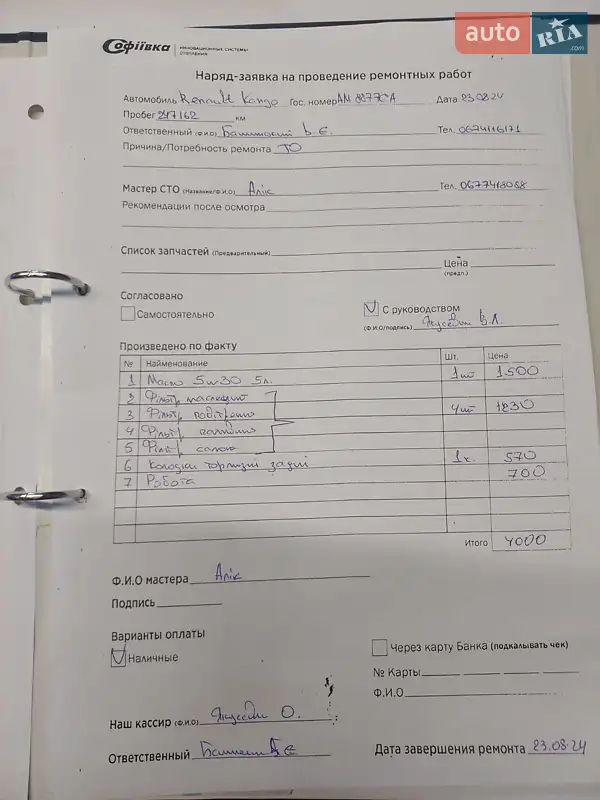 auto RIA.com
Софіївка ИННОВАЦИОННЫЕ СИСТЕМЫ
ОТОПЛЕНИЯ
Наряд-заявка на проведение ремонтных работ
Автомобиль Renault Kango Гос. номер АМ 8877СА Дата 23.08.24
Пробег 247162 км
Ответственный (Ф.И.О) В.Є. Тел. 0674116171
Причина/Потребность ремонта ТО
Мастер СТО (Название/Ф.И.О) Алік Тел. 0677413088
Рекомендации после осмотра
Список запчастей (Предварительный)
Цена
(предл.)
Согласовано
Самостоятельно
С руководством
(Ф.И.О/подпись) В.Л.
Произведено по факту
№ Найменование Шт. Цена
1 Масло 5w-30 5л. 1шт 1500
2 Фільтр масляний
3 Фільтр повітряно 4шт 1230
4 Фільтр паливно
5 Фільтр салону
6 Колодки тормозні задні 1к. 570
7 Робота 700
Итого 4000
Ф.И.О мастера Алік
Подпись
Варианты оплаты
Наличные
Через карту Банка (подкалывать чек)
№ Карты
Ф.И.О
Наш кассир (Ф.И.О) О.
Ответственный
Дата завершения ремонта 23.08.24